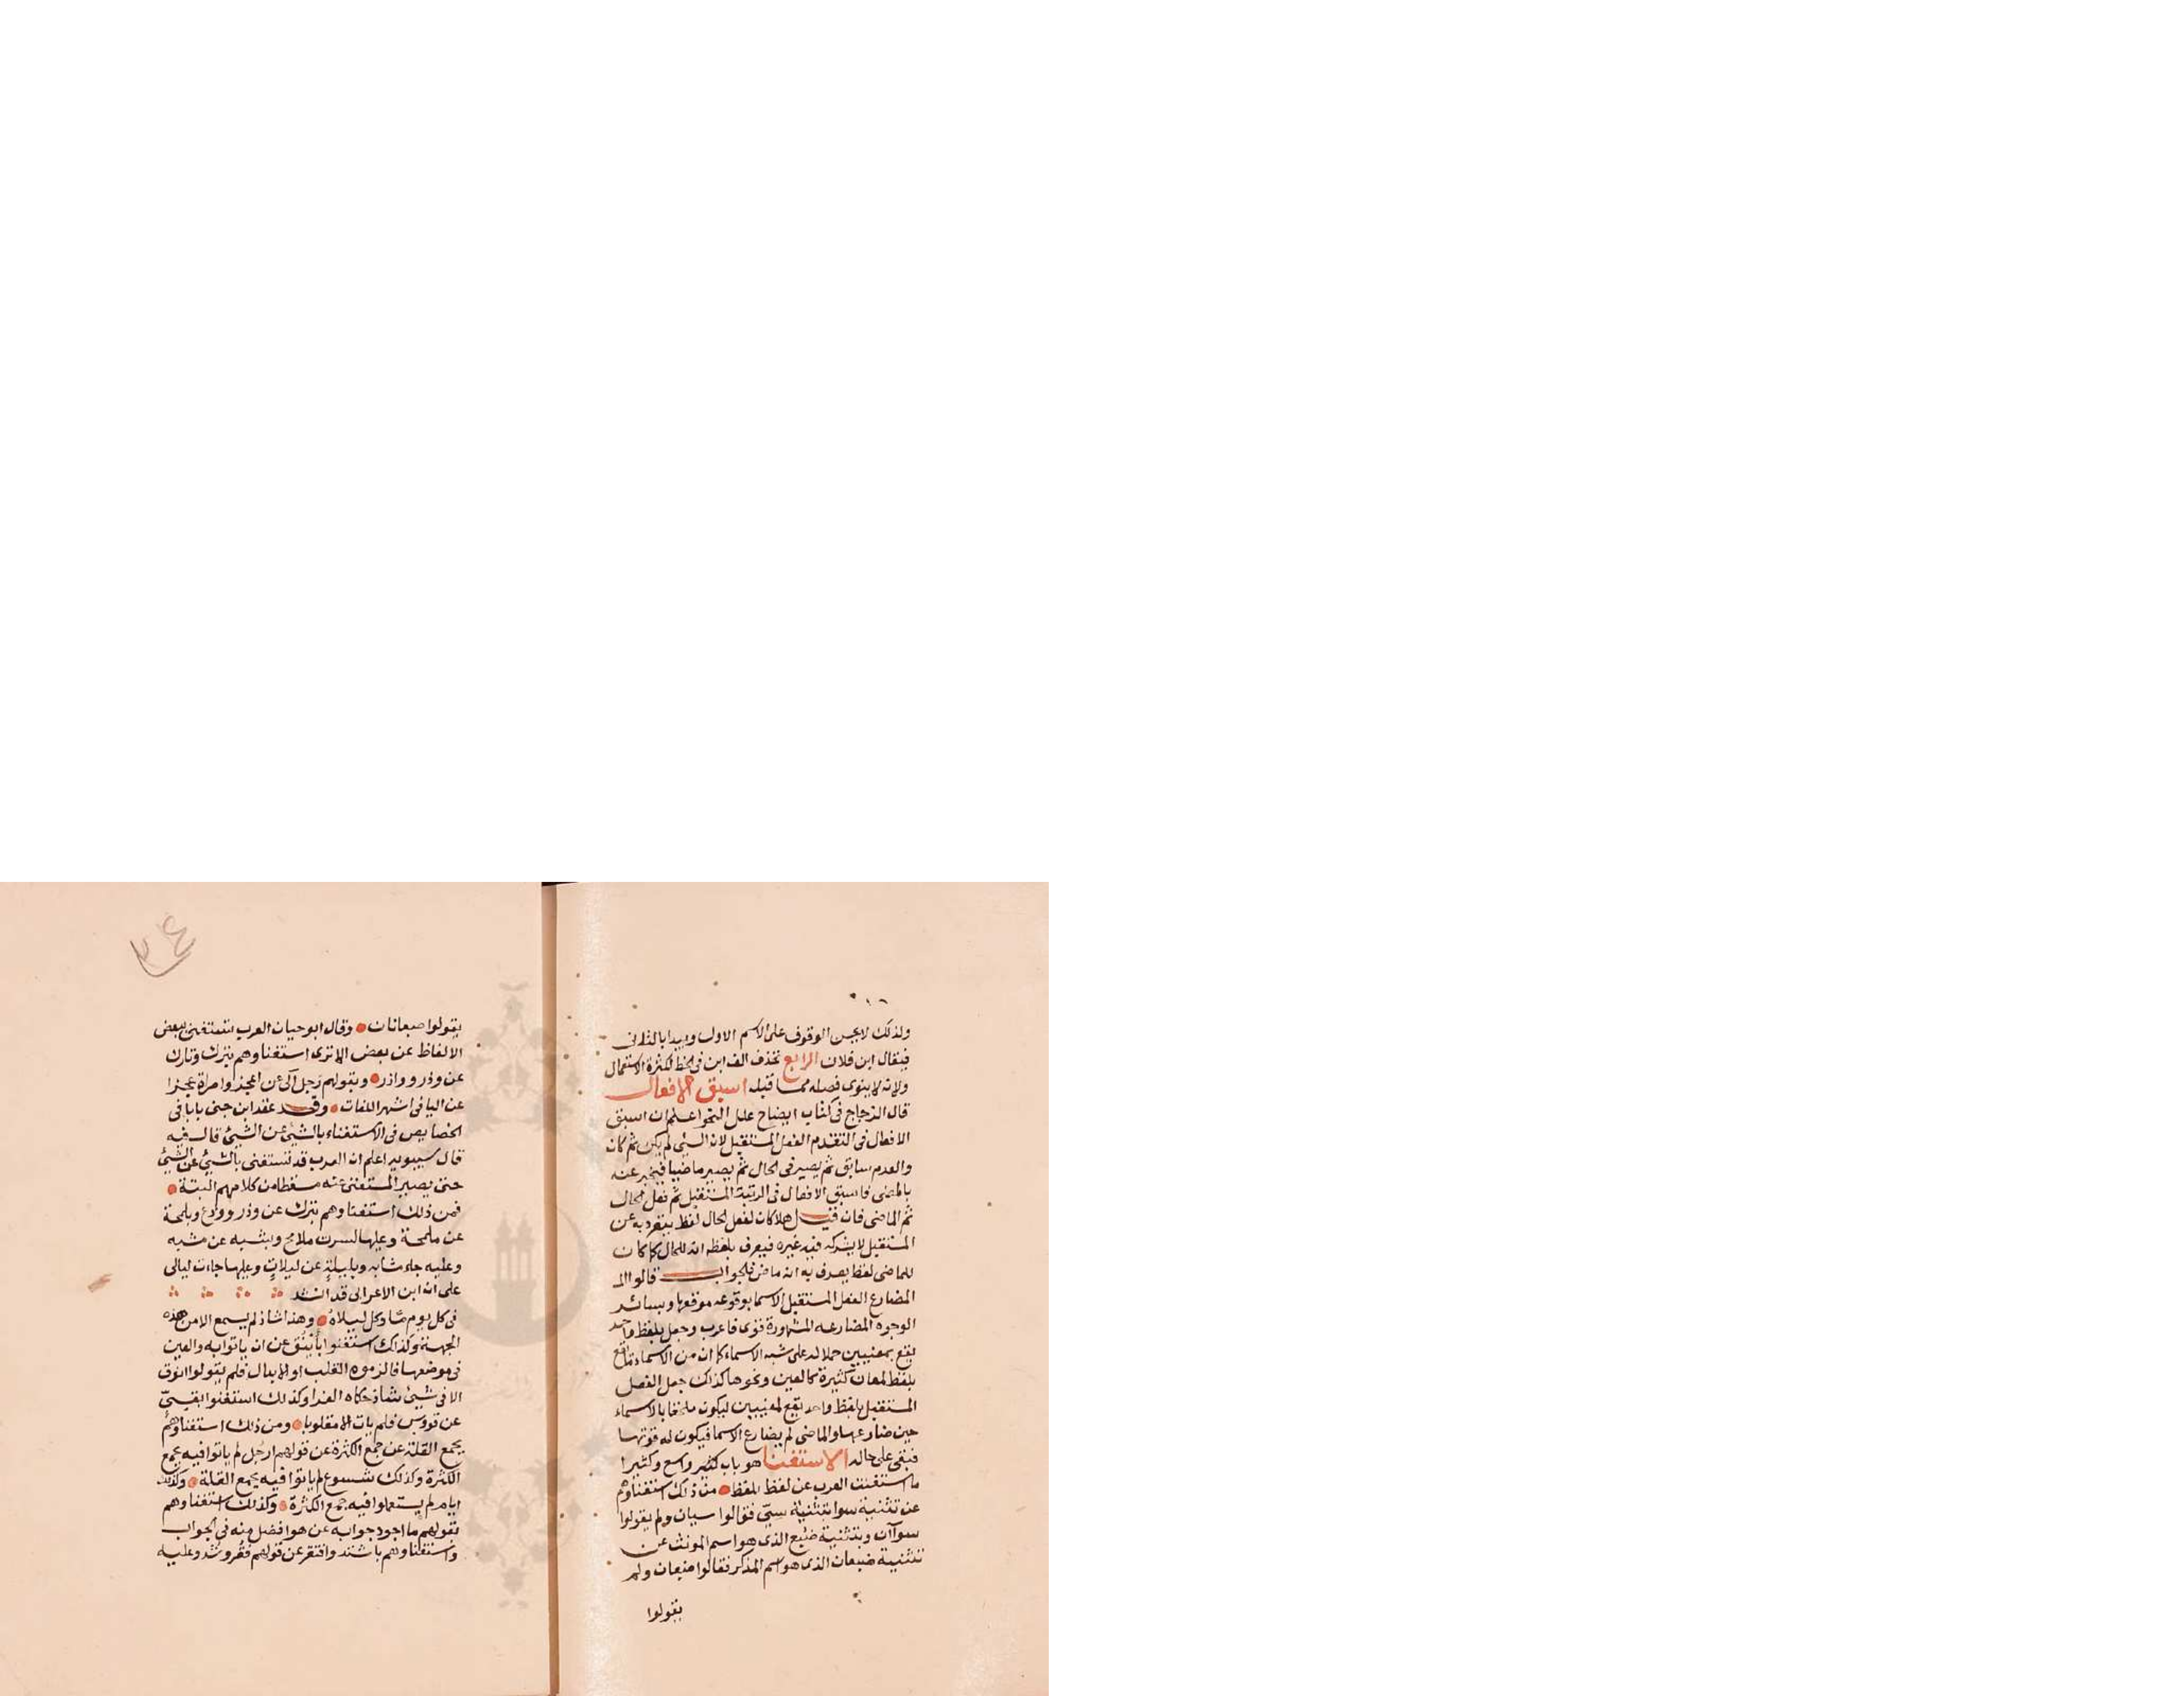 ولذلك لا يحسن الوقوف على الاسم الاول ويبدا بالثانى
فيقال ابن فلان الرابع تحذف الف ابن فى الخط لكثرة الاستعمال
ولانه لا ينوى فصله مما قبله اسبق الافعال
قال الزجاج فى كتاب ايضاح علل النحو اعلم ان اسبق
الافعال فى التقدم الفعل المستقبل لان الشئ لم يكن ثم كان
والعدم سابق ثم يصير فى الحال ثم يصير ماضيا فيخبر عنه
بالمضى فاسبق الافعال فى الرتبة المستقبل ثم فعل الحال
ثم الماضى فان قيل هلا كان لفعل الحال لفظ ينفرد به عن
المستقبل لا يشركه فيه غيره فيعرف بلفظه انه للحال كما كان
للماضى لفظ يعرف به انه ماض فالجواب قالوا لما
المضارع الفعل المستقبل الاسما بوقوعه موقعها وبسائر
الوجوه المضارعه المشهورة قوى فاعرب وجعل بلفظ واحد
يقع بمعنيين حملا له على شبه الاسماء كما ان من الاسماء ما يقع
بلفظ لمعان كثيرة كالعين ونحوها كذاك جعل الفعل
المستقبل بلفظ واحد يقع لمعنيين ليكون ملحقا بالاسماء
حين ضارعها والماضى لم يضارع الاسما فيكون له قوتها
فبقى على حاله الاستغنا هو باب واسع وكثيرا
ما استغنت العرب عن لفظ بلفظ من ذلك استغناوهم
عن تثنية سوا بتثنية سىّ فقالوا سيان ولم يقولوا
سوآان وبتثنية ضبع الذى هو اسم المونث عن
تثنية ضبعان الذى هو اسم المذكر فقالوا ضبعان ولم
يقولوا
يقولوا ضبعانان وقال ابو حيان العرب تستغنى ببعض
الالفاظ عن بعض الا ترى استغناوهم بترك وتارك
عن وذر وواذر وبقولهم رجل آلى عن اعجز وامراة عجزا
عن اليا فى اشهر اللغات وقد عقد ابن جنى بابا فى
الخصايص فى الاستغناء بالشئ عن الشئ قال فيه
قال سيبويه اعلم ان العرب قد تستغنى بالشئ عن الشئ
حتى يصير المستغنى عنه مسقطا من كلامهم البتة
فمن ذلك استغناوهم بترك عن وذر وودع وبلمحة
عن ملمحة وعليها كسرت ملامح وبشبه عن مشبه
وعليه جاء مشابه وبليلة عن ليلاة وعليها جاءت ليالى
على ان ابن الاعرابى قد انشد
فى كل يوم ما وكل ليلاه وهذا شاذ لم يسمع الا من هذه
الجهة وكذلك استغنوا بأينق عن ان ياتوا به والعين
فى موضعها فالزموه القلب او الابدال فلم يقولوا انوق
الا فى شئ شاذ حكاه الفرا وكذلك استغنوا بقسىّ
عن قووس فلم يات الا مقلوبا ومن ذلك استغناوهم
بجمع القلة عن جمع الكثرة عن قولهم ارجل لم ياتوا فيه بجمع
الكثرة وكذلك شسوع لم ياتوا فيه بجمع القلة وكذلك
ايام لم يستعملوا فيه جمع الكثرة وكذلك استغناوهم
بقولهم ما اجود جوابه عن هو افضل منه فى الجواب
واستغناوهم باشتد وافتقر عن قولهم فقر وشد وعليه